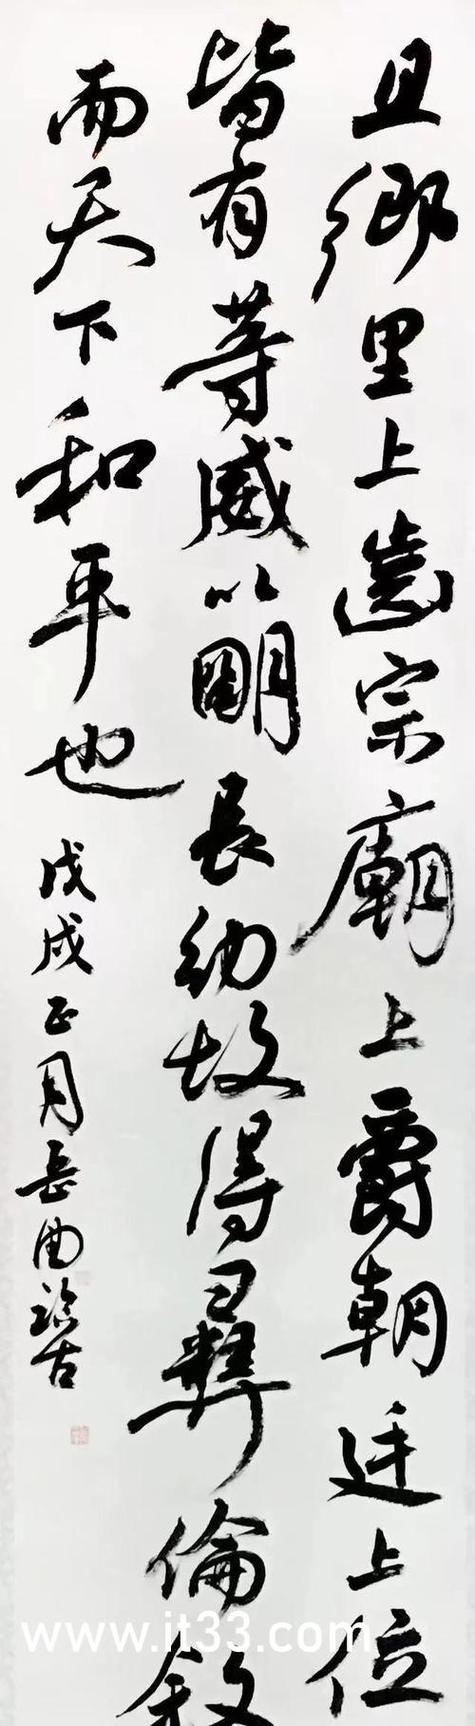 且鄉里上齒宗廟上爵朝廷上位
皆有等威以明長幼故得彝倫敘
而天下和平也
戊戌正月岳曲臨古
www.it33.com